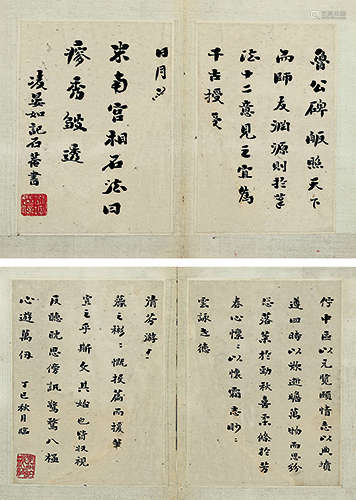 魯公碑版照天下
而師友淵源則於筆
法十二意見之宜為
千古授受
日月
米南宮相石法曰
瘮秀皺透
凌晏如記石菴書
佇中區以元覽頤情志以典墳
遵四時以歎逝瞻萬物而思紛
悲落葉於勁秋喜柔條於芳
春心懍々以懷霜志眇々
雲詠之德
清芬游々
藻之彬々慨投篇而援筆
宣之乎斯文其始也皆收視
反聽耽思傍訊驚騖八極
心遊萬仞
丁巳秋月臨